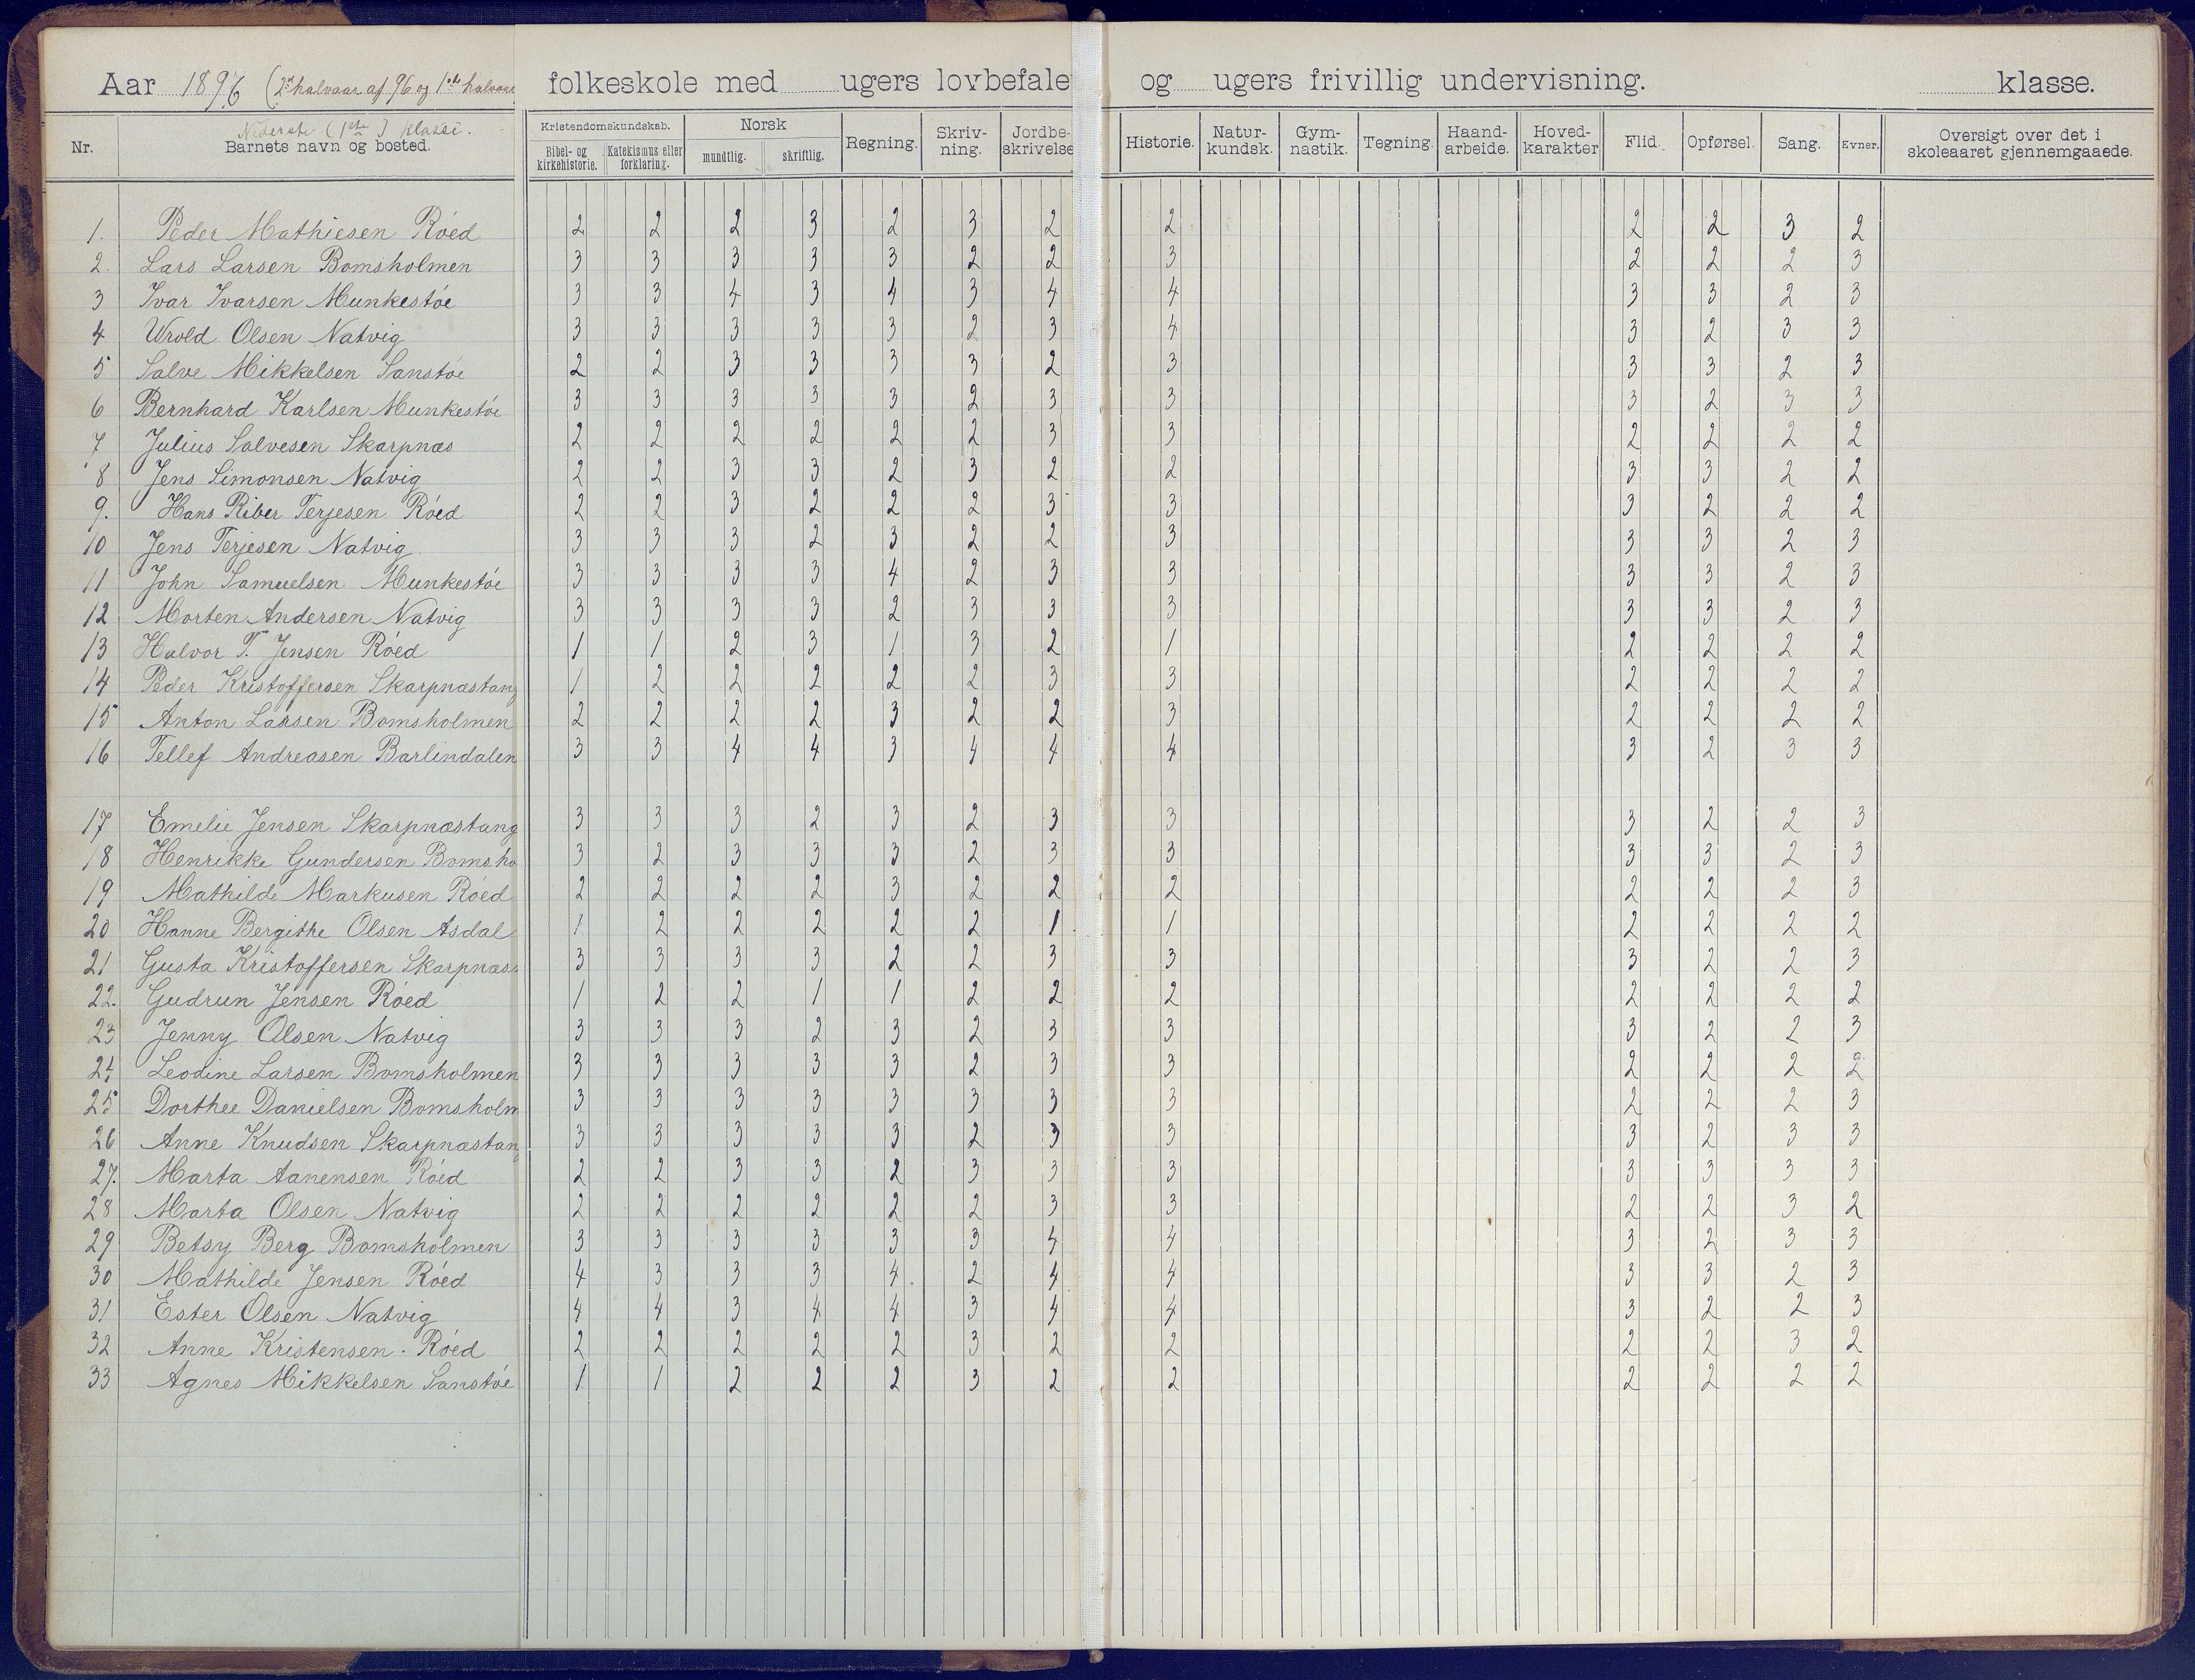 Aar 1896 (2det halvaar af 96 og 1ste halvaar folkeskole med ugers lovbefale og ugers frivillig undervisning. klasse.
Nederste (1ste) klasse.
Nr. Barnets navn og bosted. Kristendomskundskab. Bibel- og kirkehistorie. Katekismus eller forklaring. Norsk mundtlig. skriftlig. Regning. Skriv-ning. Jordbe-skrivelse Historie. Natur-kundsk. Gym-nastik. Tegning. Haand-arbeide. Hoved-karakter Flid. Opførsel. Sang. Evner. Oversigt over det i skoleaaret gjennemgaaede.
1. Peder Mathiesen Róed 2 2 2 3 2 3 2 2 2 2 3 2
2. Lars Larsen Bomsholmen 3 3 3 3 3 2 2 3 2 2 2 3
3 Ivar Ivarsen Munkestóe 3 3 4 3 4 3 4 4 3 3 2 3
4 Urold Olsen Natvig 3 3 3 3 3 2 3 4 3 2 3 3
5 Salve Mikkelsen Sanstóe 2 2 3 3 3 3 2 3 3 3 2 3
6 Bernhard Karlsen Munkestóe 3 3 3 3 3 2 3 3 3 2 3 3
7 Julius Salvesen Skarpnæs 2 2 2 2 2 2 3 3 2 2 2 2
8 Jens Simonsen Natvig 2 2 3 3 2 3 2 2 3 3 2 2
9. Hans Riber Terjesen Róed 2 2 3 2 2 2 3 3 3 2 2 2
10 Jens Terjesen Natvig 3 3 3 2 3 2 2 3 3 3 2 3
11 John Samuelsen Munkestóe 3 3 3 3 4 2 3 3 3 3 2 3
12 Morten Andersen Natvig 3 3 3 3 2 3 3 3 3 3 2 3
13 Halvor T. Jensen Róed 1 1 2 3 1 3 2 1 2 2 2 2
14 Peder Kristoffersen Skarpnæstang 1 2 2 2 2 2 3 3 2 2 2 2
15 Anton Larsen Bomsholmen 2 2 2 2 3 2 2 3 2 2 2 2
16 Tellef Andreasen Barlindalen 3 3 4 4 3 4 4 4 3 2 3 3
17 Emelie Jensen Skarpnæstang 3 3 3 2 3 2 3 3 3 2 2 3
18 Henrikke Gundersen Bomsho 3 2 3 3 3 2 3 3 3 3 2 3
19 Mathilde Markusen Róed 2 2 2 2 3 2 2 2 2 2 2 3
20 Hanne Bergithe Olsen Asdal 1 2 2 2 2 2 1 1 2 2 2 2
21 Gusta Kristoffersen Skarpnæs 3 3 3 3 2 2 3 3 3 2 2 3
22. Gudrun Jensen Róed 1 2 2 1 1 2 2 2 2 2 2 2
23 Jenny Olsen Natvig 3 3 3 2 3 2 3 3 3 2 2 3
24 Leodine Larsen Bomsholmen 3 3 3 3 3 2 3 3 2 2 2 2
25 Dorthee Danielsen Bomsholm 3 3 3 3 3 3 3 3 2 2 2 3
26 Anne Knudsen Skarpnæstang 3 3 3 3 3 2 3 3 3 2 3 3
27. Marta Aanensen Róed 2 2 3 3 2 3 3 3 3 3 3 3
28 Marta Olsen Natvig 2 2 2 2 2 2 3 3 2 2 3 2
29 Betsy Berg Bomsholmen 3 3 3 3 3 3 4 4 3 2 3 3
30 Mathilde Jensen Róed 4 3 3 3 4 2 4 4 3 3 2 3
31 Ester Olsen Natvig 4 4 3 4 4 3 4 4 3 2 2 3
32 Anne Kristensen Róed 2 2 2 2 2 3 2 2 2 2 3 2
33 Agnes Mikkelsen Sanstóe 1 1 2 2 2 3 2 2 2 2 2 2